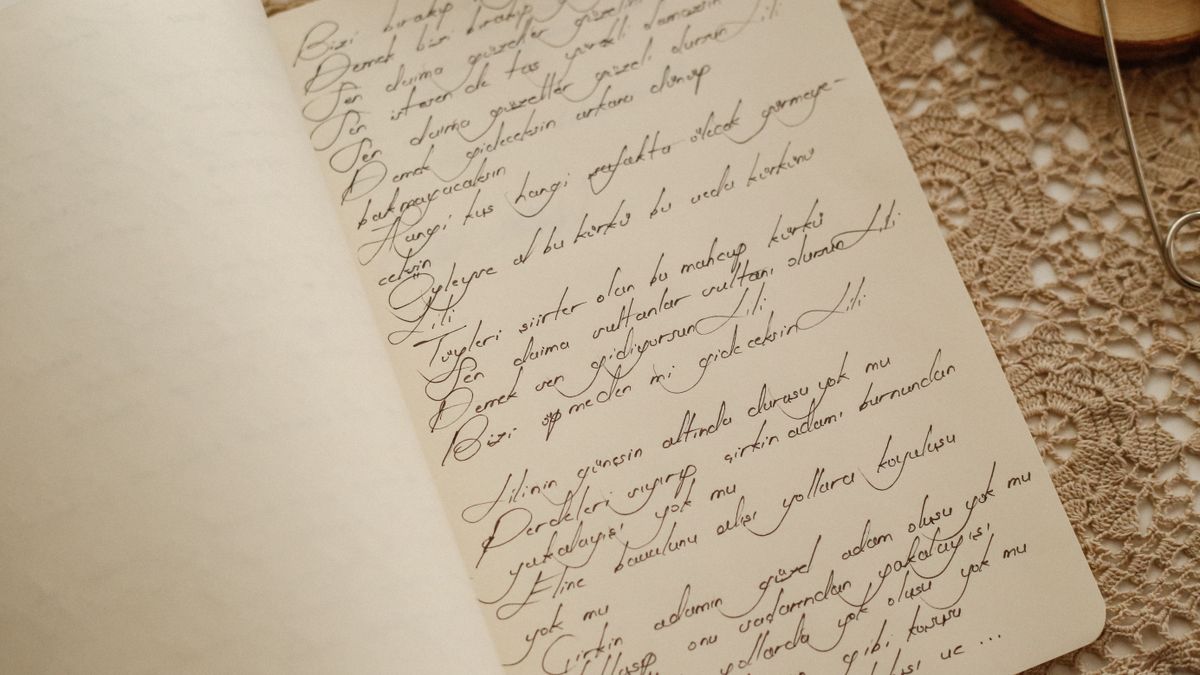 Bizi bırakıp
Demek bizi bırakıp
Sen daima güzeller güzelini
Sen istesen de taş yürekli olamazsın Lili
Sen daima güzeller güzeli olursun
Demek gideceksin arkana dönüp
bakmayacaksın
Hangi kuş hangi şafakta ölecek görmeye-
ceksin
Öyleyse al bu kürkü bu veda kürkünü
Lili
Tüyleri şiirler olan bu mahcup kürkü
Sen daima sultanlar sultanı olursun Lili
Demek sen gidiyorsun Lili
Bizi öpmeden mi gideceksin Lili
Lilinin güneşin altında duruşu yok mu
Perdeleri sıyırıp çirkin adamı burnundan
yakalayışı yok mu
Eline bavulunu alışı yollara koyuluşu
yok mu
Çirkin adamın güzel adam oluşu yok mu
onu vadarından yakalayışı
yollarda yok oluşu yok mu
gibi koşusu
ve ...